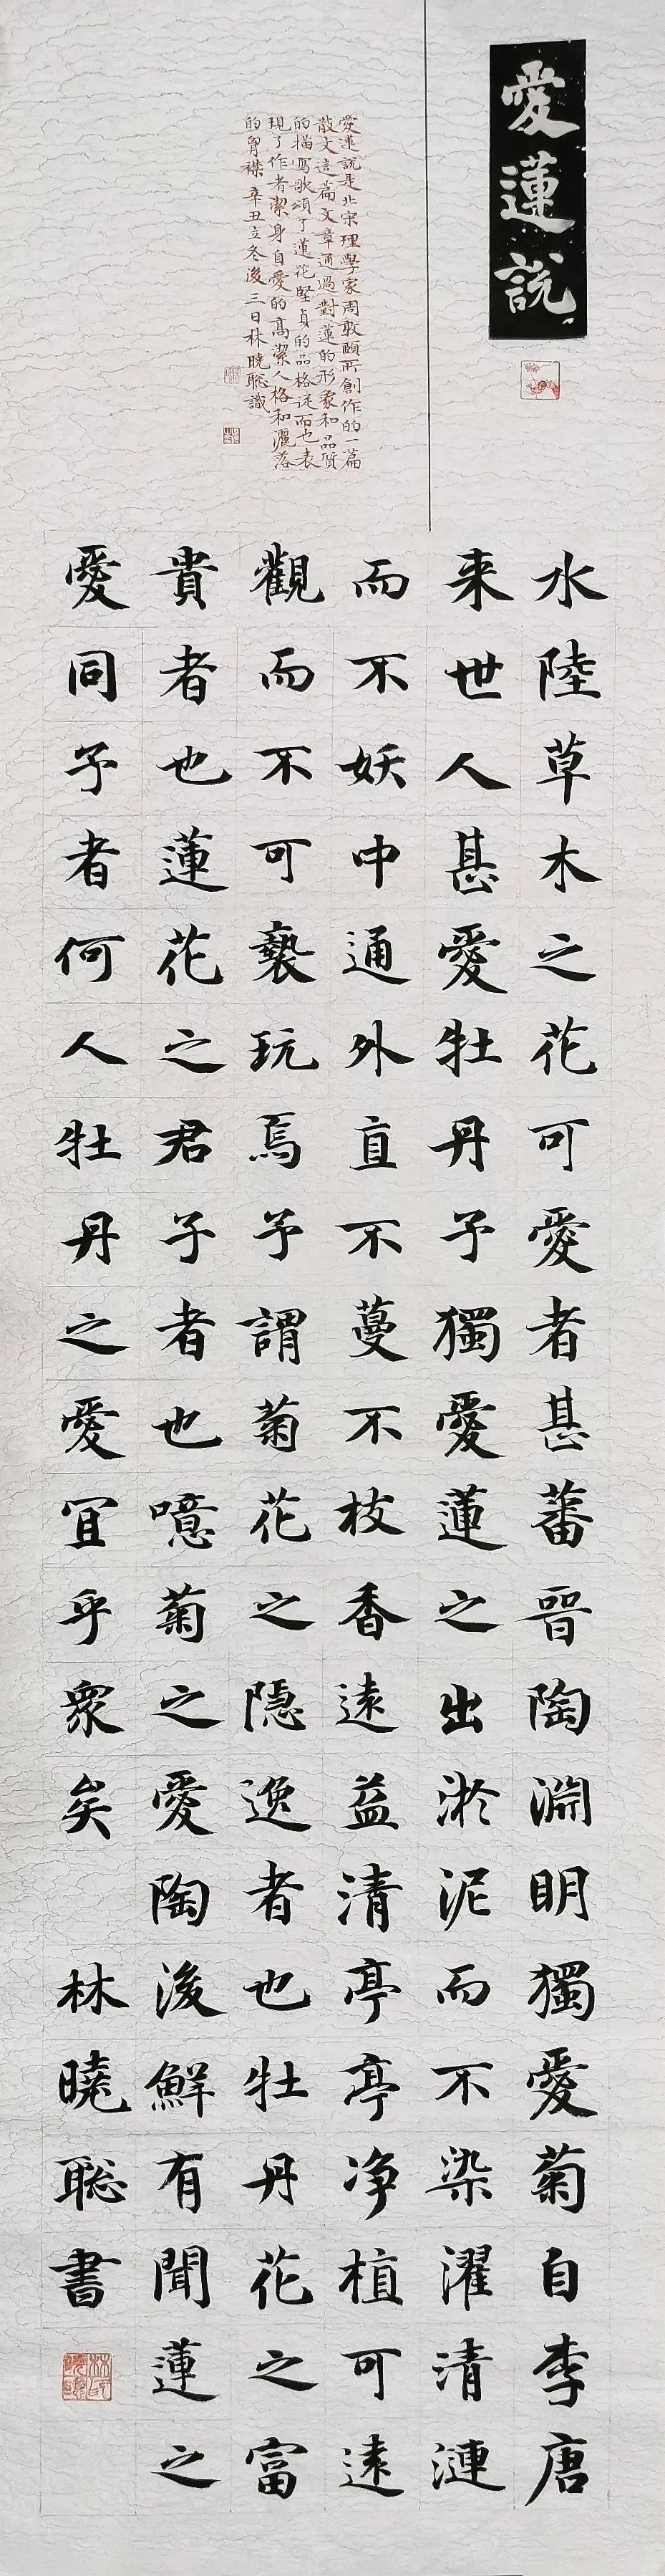 愛蓮說
愛蓮說是北宋理學家周敦頤所創作的一篇
散文這篇文章通過對蓮的形象和品質
的描寫歌頌了蓮花堅貞的品格從而也表
現了作者潔身自愛的高潔人格和灑落
的胷襟辛丑立冬後三日林曉聰識
水陸草木之花可愛者甚蕃晉陶淵明獨愛菊自李唐
来世人甚愛牡丹予獨愛蓮之出淤泥而不染濯清漣
而不妖中通外直不蔓不枝香遠益清亭亭净植可遠
觀而不可褻玩焉予謂菊花之隱逸者也牡丹花之富
貴者也蓮花之君子者也噫菊之愛陶後鮮有聞蓮之
愛同予者何人牡丹之愛宜乎衆矣 林曉聰書